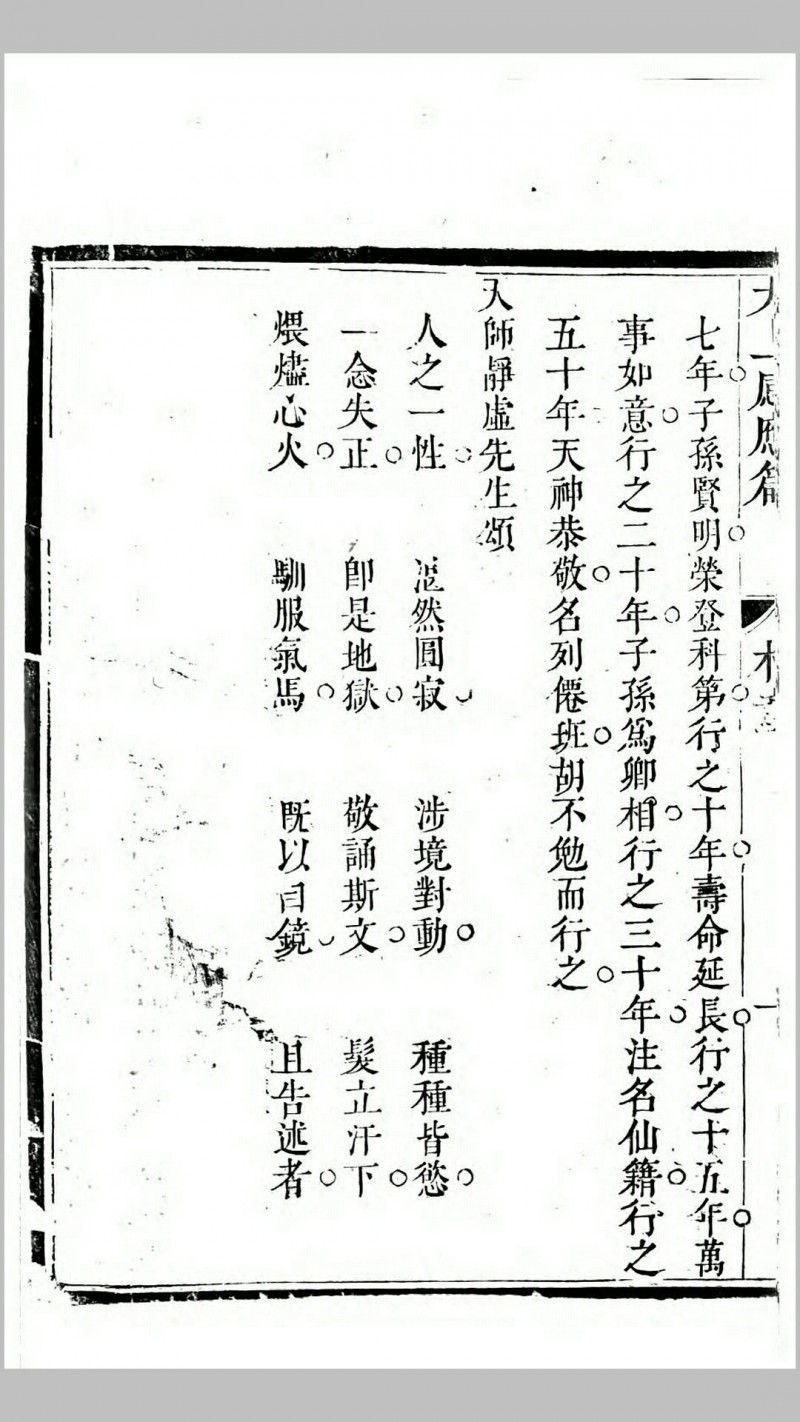 太上感應篇
七年子孫賢明榮登科第行之十年壽命延長行之十五年萬
事如意行之二十年子孫爲卿相行之三十年注名仙籍行之
五十年天神恭敬名列僊班胡不勉而行之
天師靜虛先生頌
人之一性 湛然圓寂 涉境對動 種種皆慾
一念失正 卽是地獄 敬誦斯文 髮立汗下
煨燼心火 馴服氣馬 既以自鏡 且告述者